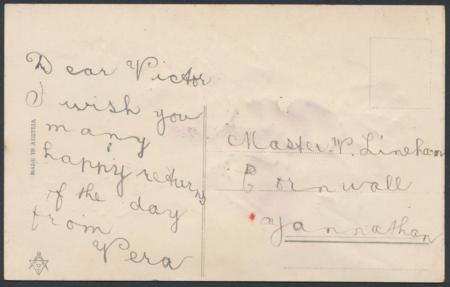 Dear Victor
I wish you
many
happy returns
of the day
from
Vera
MADE IN AUSTRIA
Master. V. Lineham
Cornwall
Yannathan